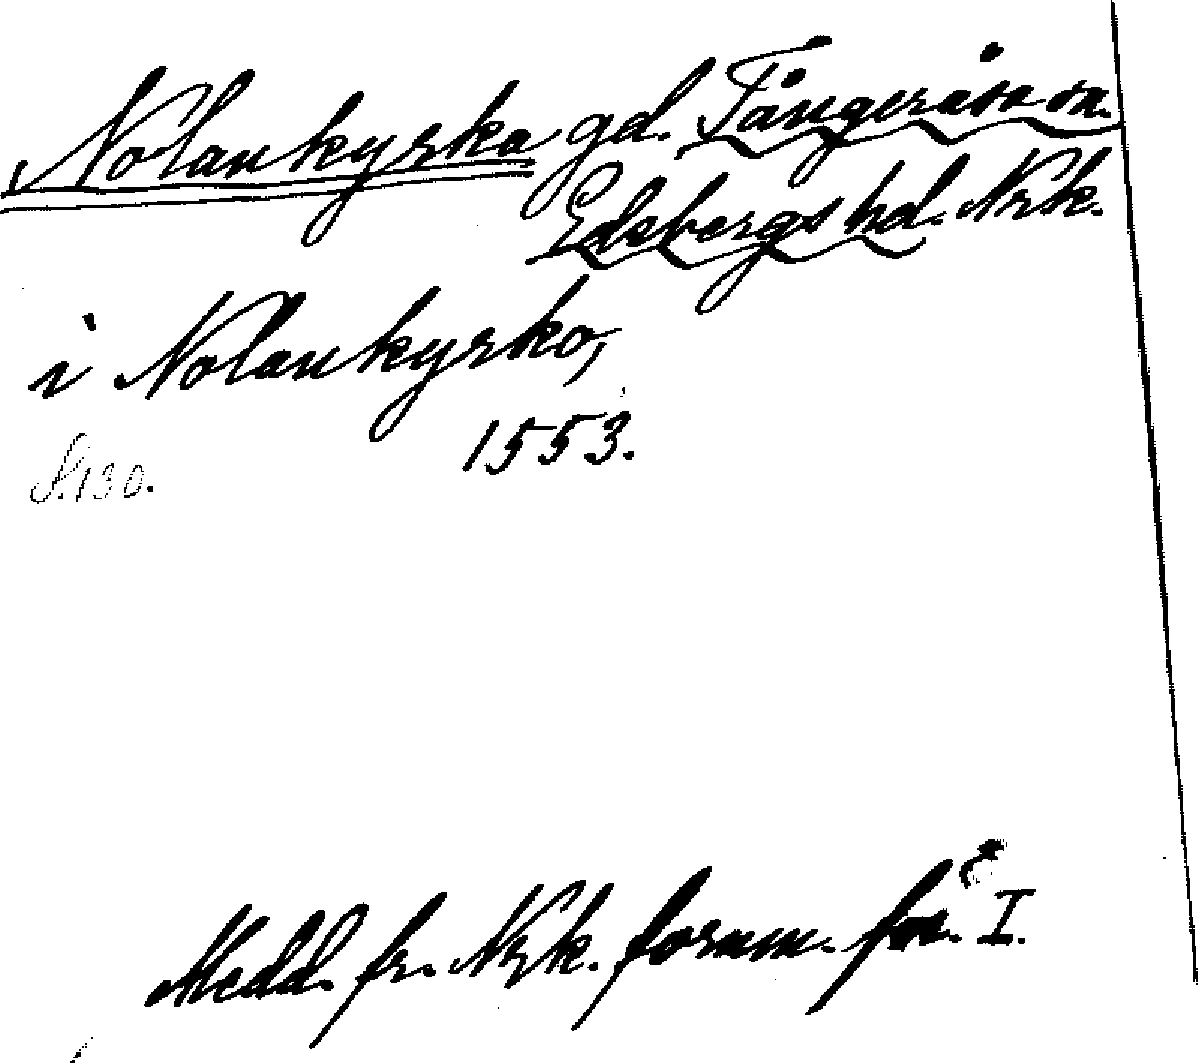 Nolankyrka gd. Tångeråsa sn.
Edsbergs hd. Nrk.
i Nolankyrko,
1553.
S. 130.
Medd. fr. Nrk. fornm. för. I.